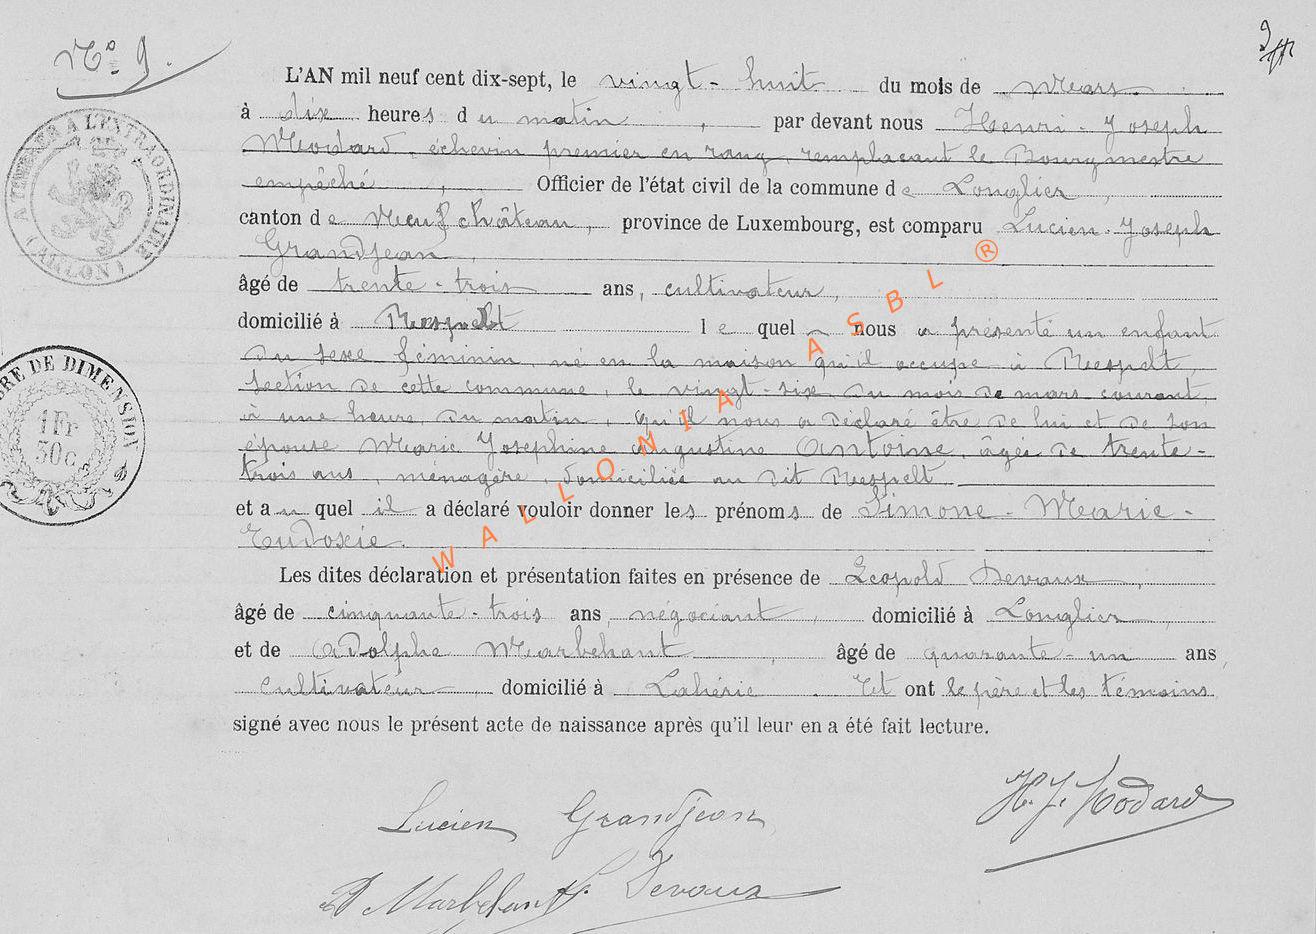 N° 9.
9
L'AN mil neuf cent dix-sept, le vingt-huit du mois de Mars
à dix heures du matin, par devant nous Henri-Joseph
Modard, échevin premier en rang, remplaçant le Bourgmestre
empêché, Officier de l'état civil de la commune de Longlier,
canton de Neufchâteau, province de Luxembourg, est comparu Lucien-Joseph
Grandjean,
âgé de trente-trois ans, cultivateur,
domicilié à Respelt lequel nous a présenté un enfant
du sexe féminin, né en la maison qu'il occupe à Respelt,
section de cette commune, le vingt-six du mois de mars courant,
à une heure du matin, qu'il nous a déclaré être de lui et de son
épouse Marie Josephine Augustine Antoine, âgée de trente-
trois ans, ménagère, domiciliée au dit Respelt
et auquel il a déclaré vouloir donner les prénoms de Simone-Marie-
Eudoxie.
Les dites déclaration et présentation faites en présence de Léopold Devaux,
âgé de cinquante-trois ans négociant, domicilié à Longlier
et de Adolphe Marbehant, âgé de quarante-un ans,
cultivateur domicilié à Lahérie. Et ont le père et les témoins
signé avec nous le présent acte de naissance après qu'il leur en a été fait lecture.
Lucien Grandjean
H. J. Modard
Marbehant
L. Devaux
A L'EXTRAORDINAIRE
(ARLON)
TIMBRE DE DIMENSION
1 Fr
30 c.
WALLONIA ASBL ®